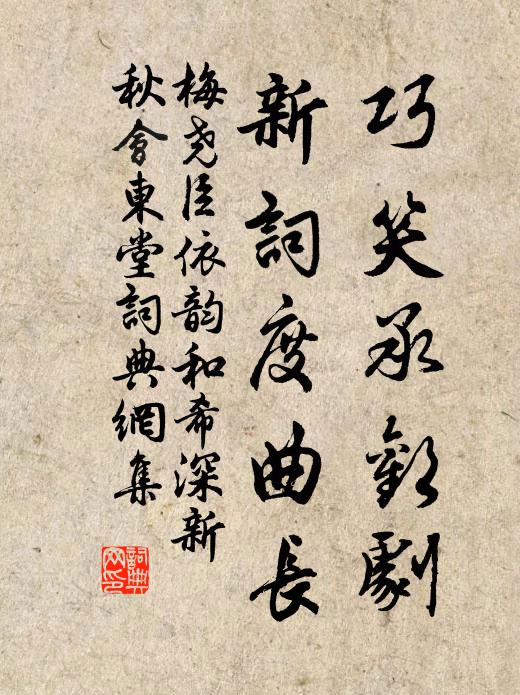 巧笑承歡劇
新詞度曲長
梅堯臣依韵和希深新
秋會東堂詞典網集
詞典
网印